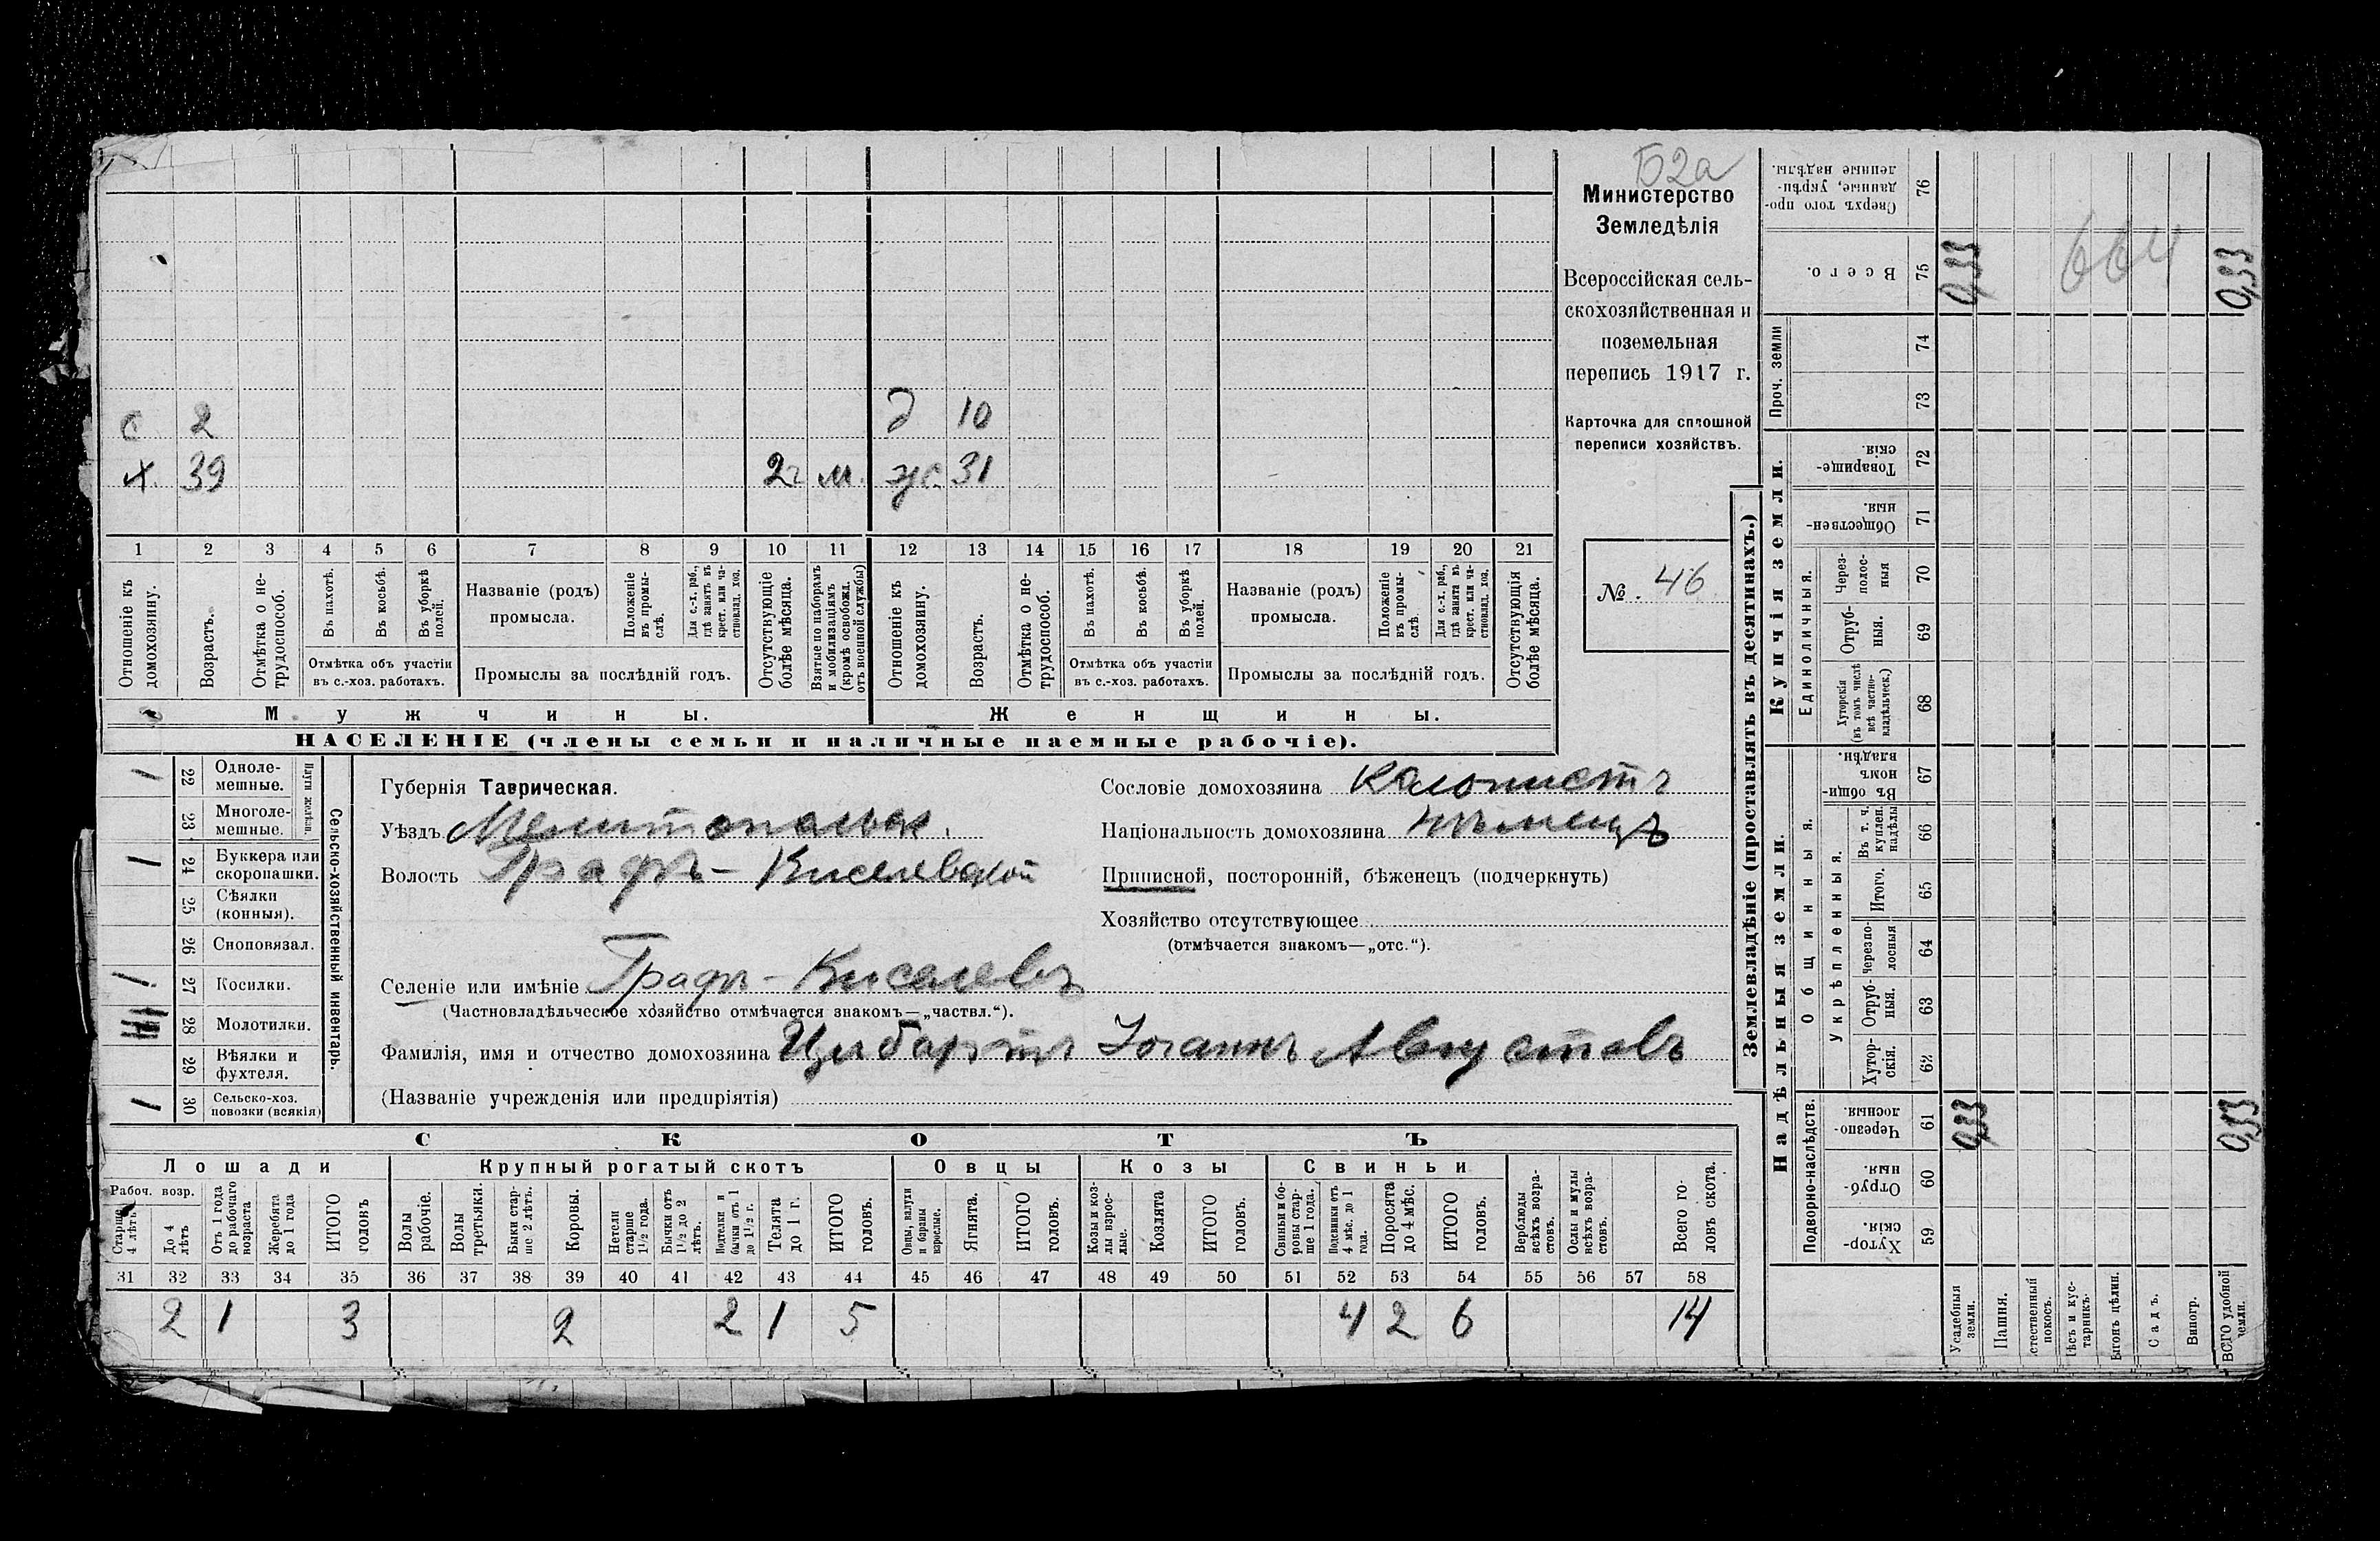 Б2а
Министерство
Земледѣлія
Всероссійская сель-
скохозяйственная и
поземельная
перепись 1917 г.
Карточка для сплошной
переписи хозяйствъ.
№ 46
с 2 д 10
х. 39 2г м. ж. 31
1 2 3 4 5 6 7 8 9 10 11 12 13 14 15 16 17 18 19 20 21
Отношеніе къ домохозяину.
Возрастъ.
Отмѣтка о не-трудоспособ.
Въ пахотѣ.
Въ косьбѣ.
Въ уборкѣ полей.
Отмѣтка объ участіи въ с.-хоз. работахъ.
Названіе (родъ) промысла.
Положеніе въ промы-слѣ.
Для с.-х. раб., гдѣ занятъ въ крест. или ча-стновлад. хоз.
Промыслы за послѣдній годъ.
Отсутствующіе болѣе мѣсяца.
Взятые по наборамъ и мобилизаціямъ (кромѣ освобожд. отъ военной службы)
Отношеніе къ домохозяину.
Возрастъ.
Отмѣтка о не-трудоспособ.
Въ пахотѣ.
Въ косьбѣ.
Въ уборкѣ полей.
Отмѣтка объ участіи въ с.-хоз. работахъ.
Названіе (родъ) промысла.
Положеніе въ промы-слѣ.
Для с.-х. раб., гдѣ занята въ крест. или ча-стновлад. хоз.
Промыслы за послѣдній годъ.
Отсутствующія болѣе мѣсяца.
Мужчины. Женщины.
НАСЕЛЕНІЕ (члены семьи и наличные наемные рабочіе).
Сельско-хозяйственный инвентарь.
1 22 Одноле-мешные.
23 Многоле-мешные.
1 24 Буккера или скоропашки.
25 Сѣялки (конныя).
26 Сноповязал.
1 27 Косилки.
28 Молотилки.
29 Вѣялки и фухтеля.
1 30 Сельско-хоз. повозки (всякія)
Губернія Таврическая.
Уѣздъ Мелитопольск.
Волость Графъ-Киселевской
Селеніе или имѣніе Графъ-Киселевъ
(Частновладѣльческое хозяйство отмѣчается знакомъ—„частвл.“).
Фамилія, имя и отчество домохозяина Цибартъ Іоганнъ Августовъ
(Названіе учрежденія или предпріятія)
Сословіе домохозяина Колонистъ
Національность домохозяина нѣмецъ
Приписной, посторонній, бѣженецъ (подчеркнуть)
Хозяйство отсутствующее
(отмѣчается знакомъ—„отс.“).
СКОТЪ
Лошади Крупный рогатый скотъ Овцы Козы Свиньи
Рабоч. возр.
Старше 4 лѣтъ
До 4 лѣтъ
Отъ 1 года до рабочаго возраста
Жеребята до 1 года
ИТОГО головъ
Волы рабочіе.
Волы третьяки.
Быки стар-ше 2 лѣтъ.
Коровы.
Нетели старше 1½ года.
Бычки отъ 1½ до 2 лѣтъ.
Подтелки и бычки отъ 1 до 1½ г.
Телята до 1 г.
ИТОГО головъ.
Овцы, валухи и бараны взрослые.
Ягнята.
ИТОГО головъ.
Козы и коз-лы взрос-лые.
Козлята
ИТОГО головъ.
Свиньи и бо-ровы стар-ше 1 года.
Подсвинки отъ 4 мѣс. до 1 года.
Поросята до 4 мѣс.
ИТОГО головъ.
Верблюды всѣхъ возра-стовъ.
Ослы и мулы всѣхъ возра-стовъ.
Всего го-ловъ скота.
31 32 33 34 35 36 37 38 39 40 41 42 43 44 45 46 47 48 49 50 51 52 53 54 55 56 57 58
2 1 3 2 2 1 5 4 2 6 14
Землевладѣніе (проставлять въ десятинахъ.)
Надѣльныя земли. Купчія земли. Проч. земли
Подворно-наслѣдств.
Общинныя.
Укрѣпленныя.
Единоличныя.
Хутор-скія. 59
Отруб-ныя. 60
Черезпо-лосныя. 61
Хутор-скія. 62
Отруб-ныя. 63
Черезпо-лосныя 64
Итого. 65
Въ т. ч. куплен. надѣлы 66
Въ общи-номъ владѣн. 67
Хуторскія (въ томъ числѣ всѣ частно-владѣльческ.) 68
Отруб-ныя. 69
Через-полос-ныя 70
Обществен-ныя. 71
Товарище-скія. 72
73
74
Всего. 75
Сверхъ того про-данные, укрѣп-ленные надѣлы. 76
Усадебныя земли.
Пашня.
Садъ.
Виногр.
ВСЕГО удобной земли.
0,33 0,33
664
0,33 0,33